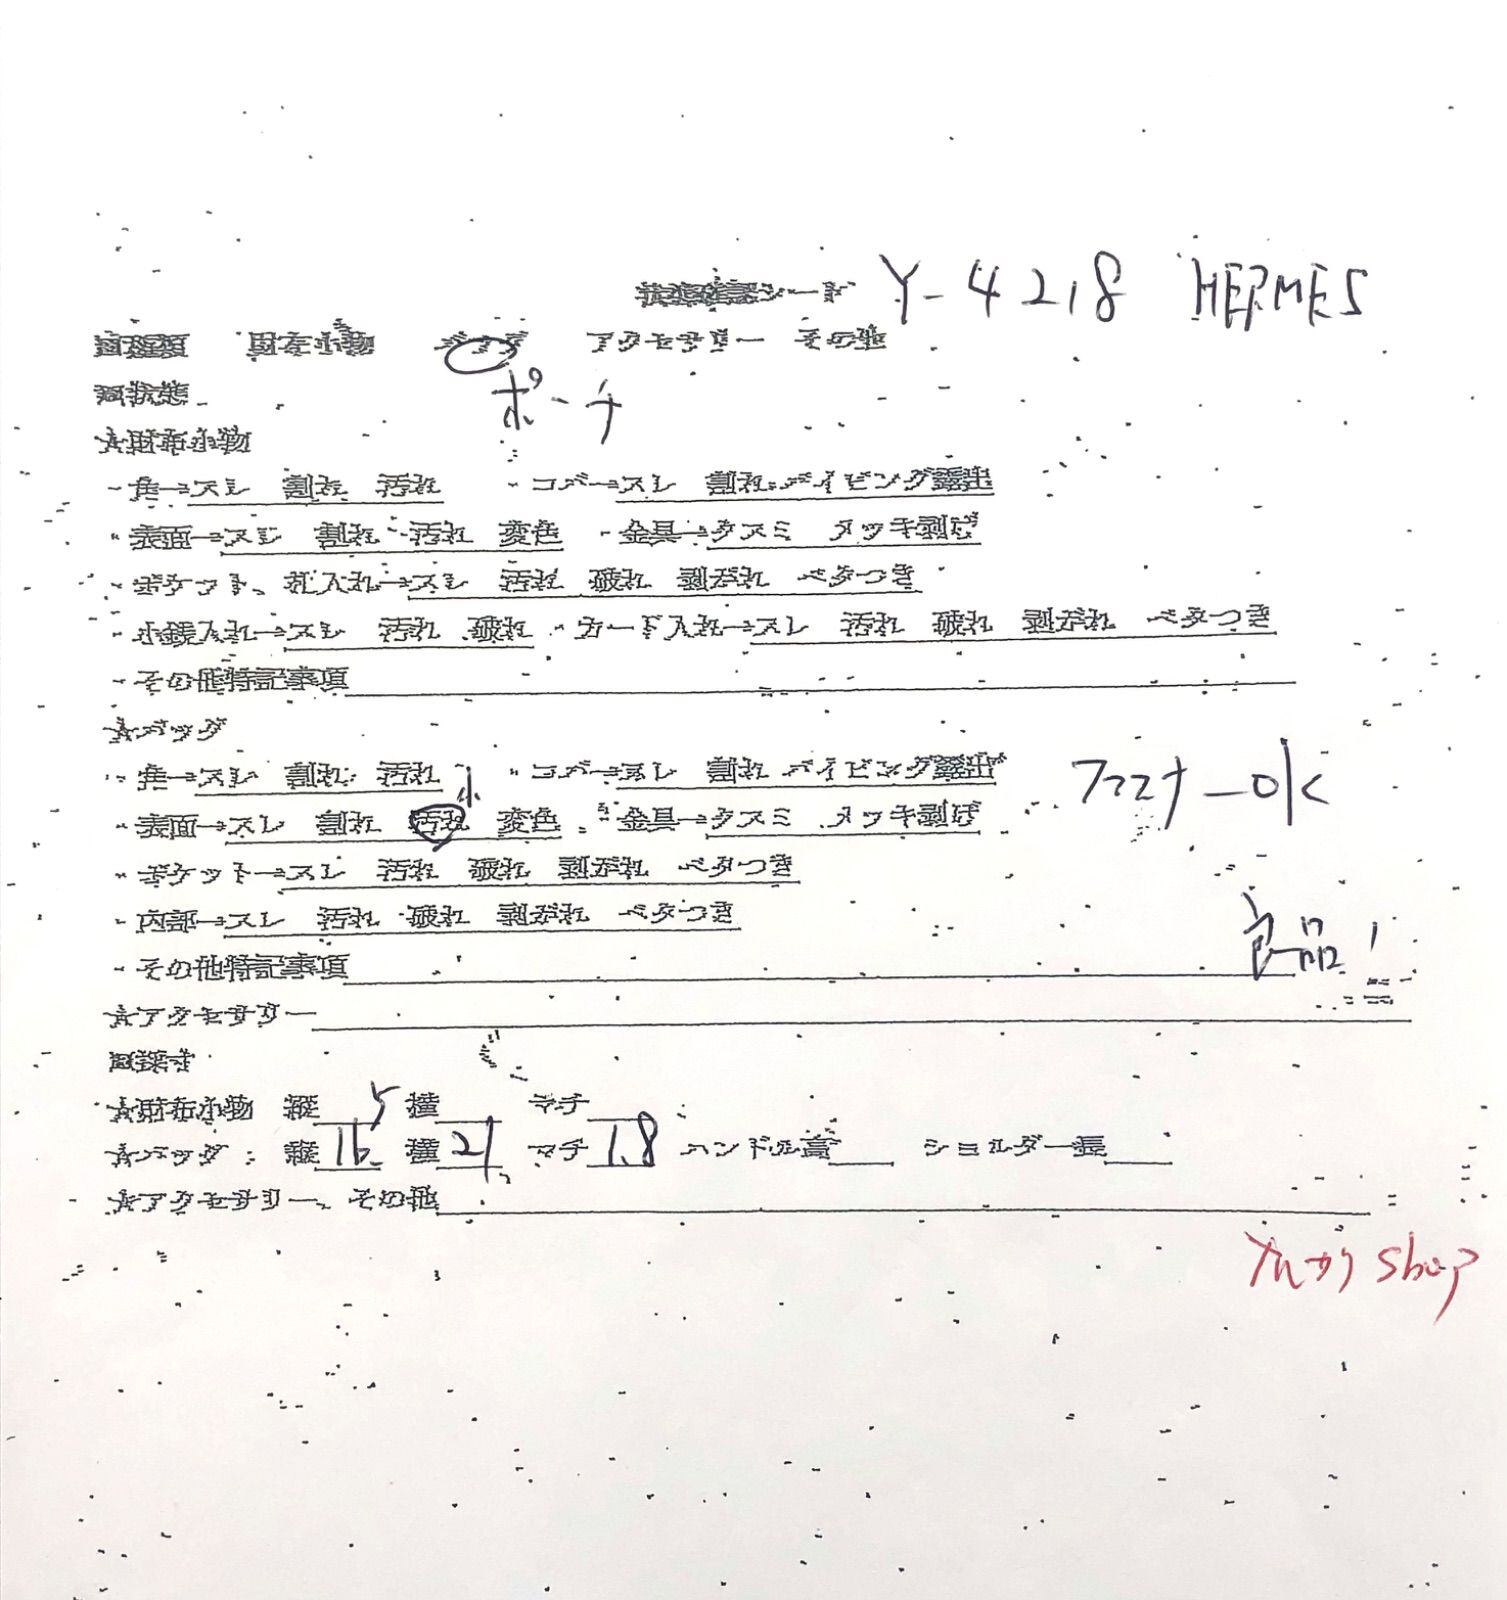 状態確認シート Y-4218 HERMES
財布小物 バッグ アクセサリー その他
状態 ポーチ
☆財布小物
・角→スレ 割れ 汚れ ・コバ→スレ 割れ パイピング露出
・表面→スレ 割れ 汚れ 変色 ・金具→クスミ メッキ剥げ
・ポケット、札入れ→スレ 汚れ 破れ 剥がれ ベタつき
・小銭入れ→スレ 汚れ 破れ ・カード入れ→スレ 汚れ 破れ 剥がれ ベタつき
・その他特記事項
☆バッグ
・角→スレ 割れ 汚れ ・コバ→スレ 割れ パイピング露出
小
・表面→スレ 割れ 汚れ 変色 ・金具→クスミ メッキ剥げ ファスナーOK
・ポケット→スレ 汚れ 破れ 剥がれ ベタつき
・内部→スレ 汚れ 破れ 剥がれ ベタつき
良品!
・その他特記事項
☆アクセサリー
採寸
☆財布小物 縦 横 マチ
☆バッグ：縦16 横21 マチ1.8 ハンドル高 ショルダー長
☆アクセサリー、その他
shop